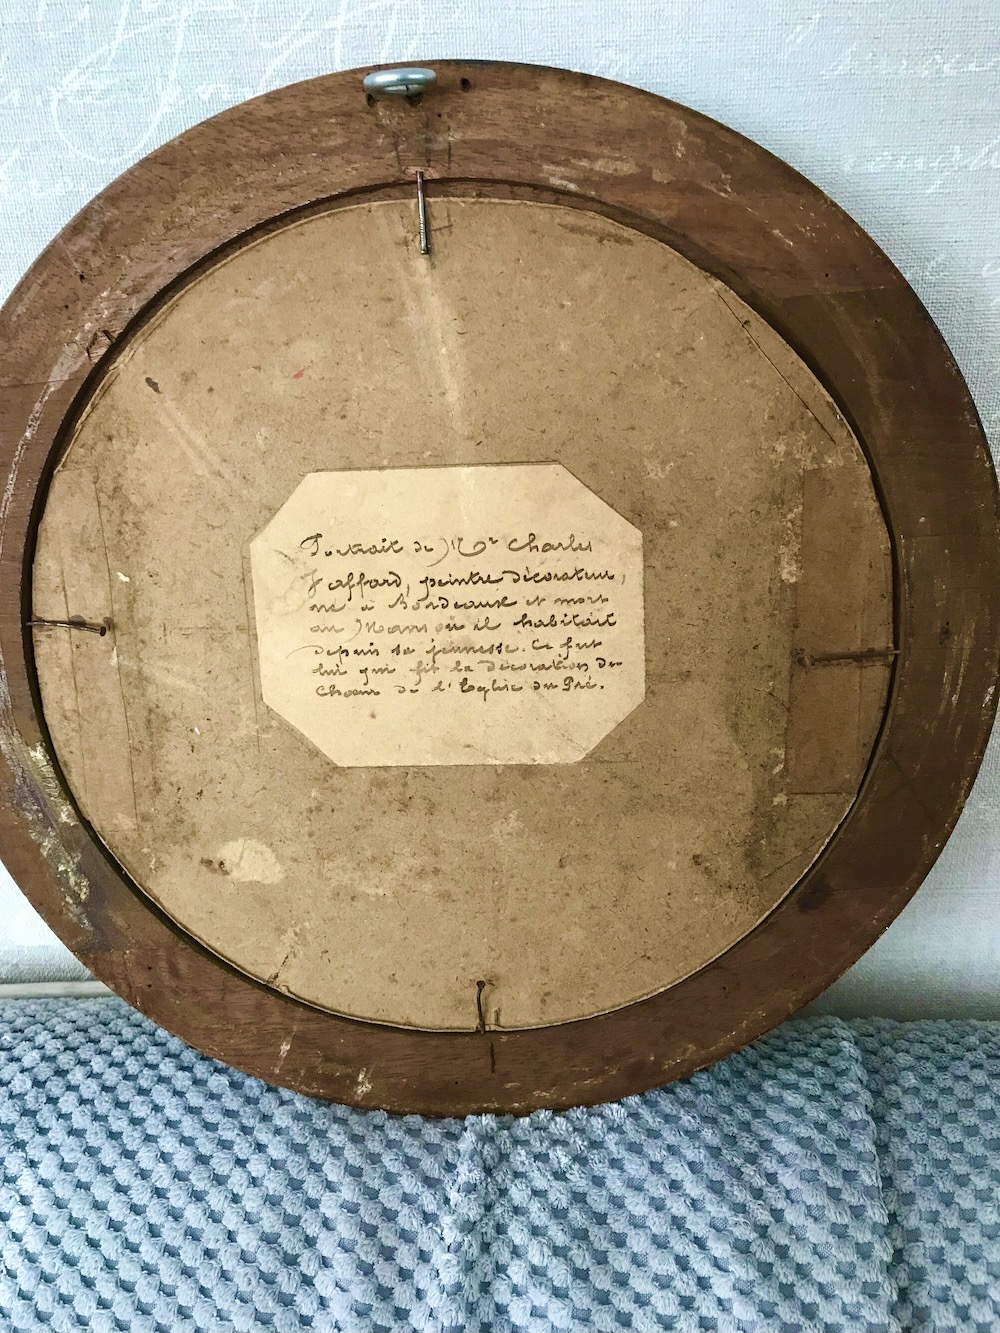 Portrait de Mr Charles
Jaffard, peintre décorateur,
né à Bordeaux et mort
au Mans où il habitait
depuis sa jeunesse. Ce fut
lui qui fit la décoration du
Chœur de l'Eglise du Pré.